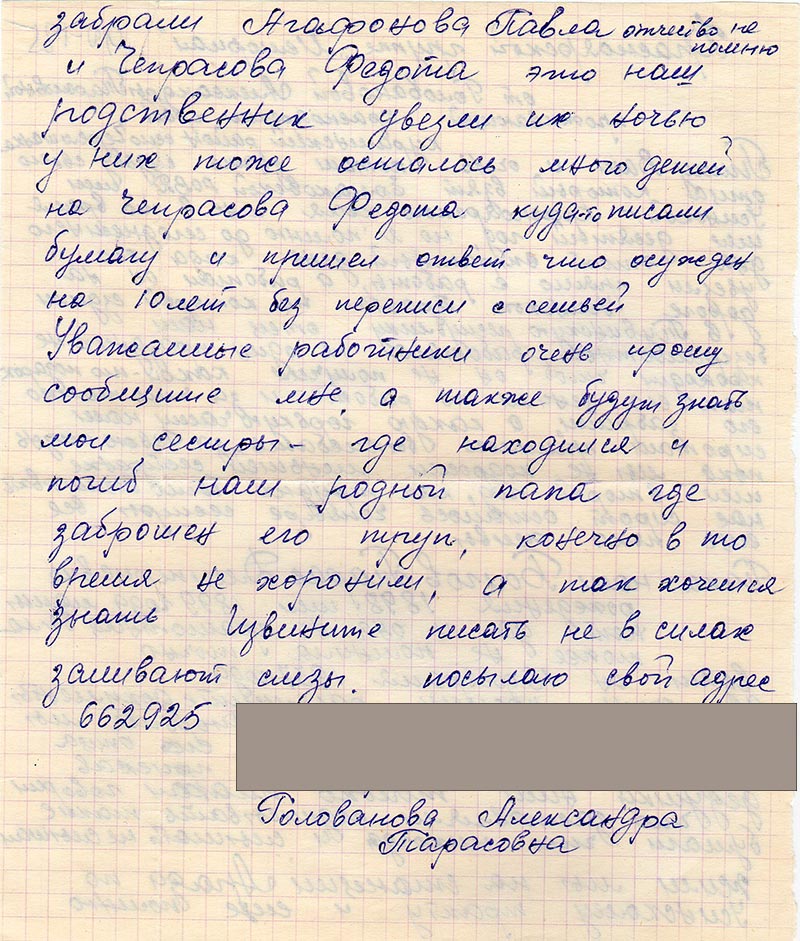 забрали Агафонова Павла отчество не помню
и Чепрасова Федота это наш
родственник увезли их ночью
у них тоже осталось много детей
на Чепрасова Федота куда-то писали
бумагу и пришел ответ что осужден
на 10 лет без переписи с семьей
Уважаемые работники очень прошу
сообщите мне, а также будут знать
мои сестры – где находился и
погиб наш родный папа где
заброшен его труп, конечно в то
время не хоронили, а так хочется
знать Извините писать не в силах
заливают слезы. посылаю свой адрес
662925
Голованова Александра
Тарасовна